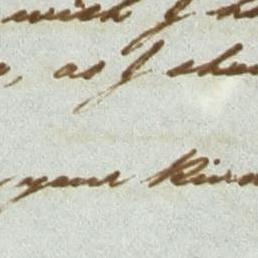 wish I ha
, as I shou
your kind